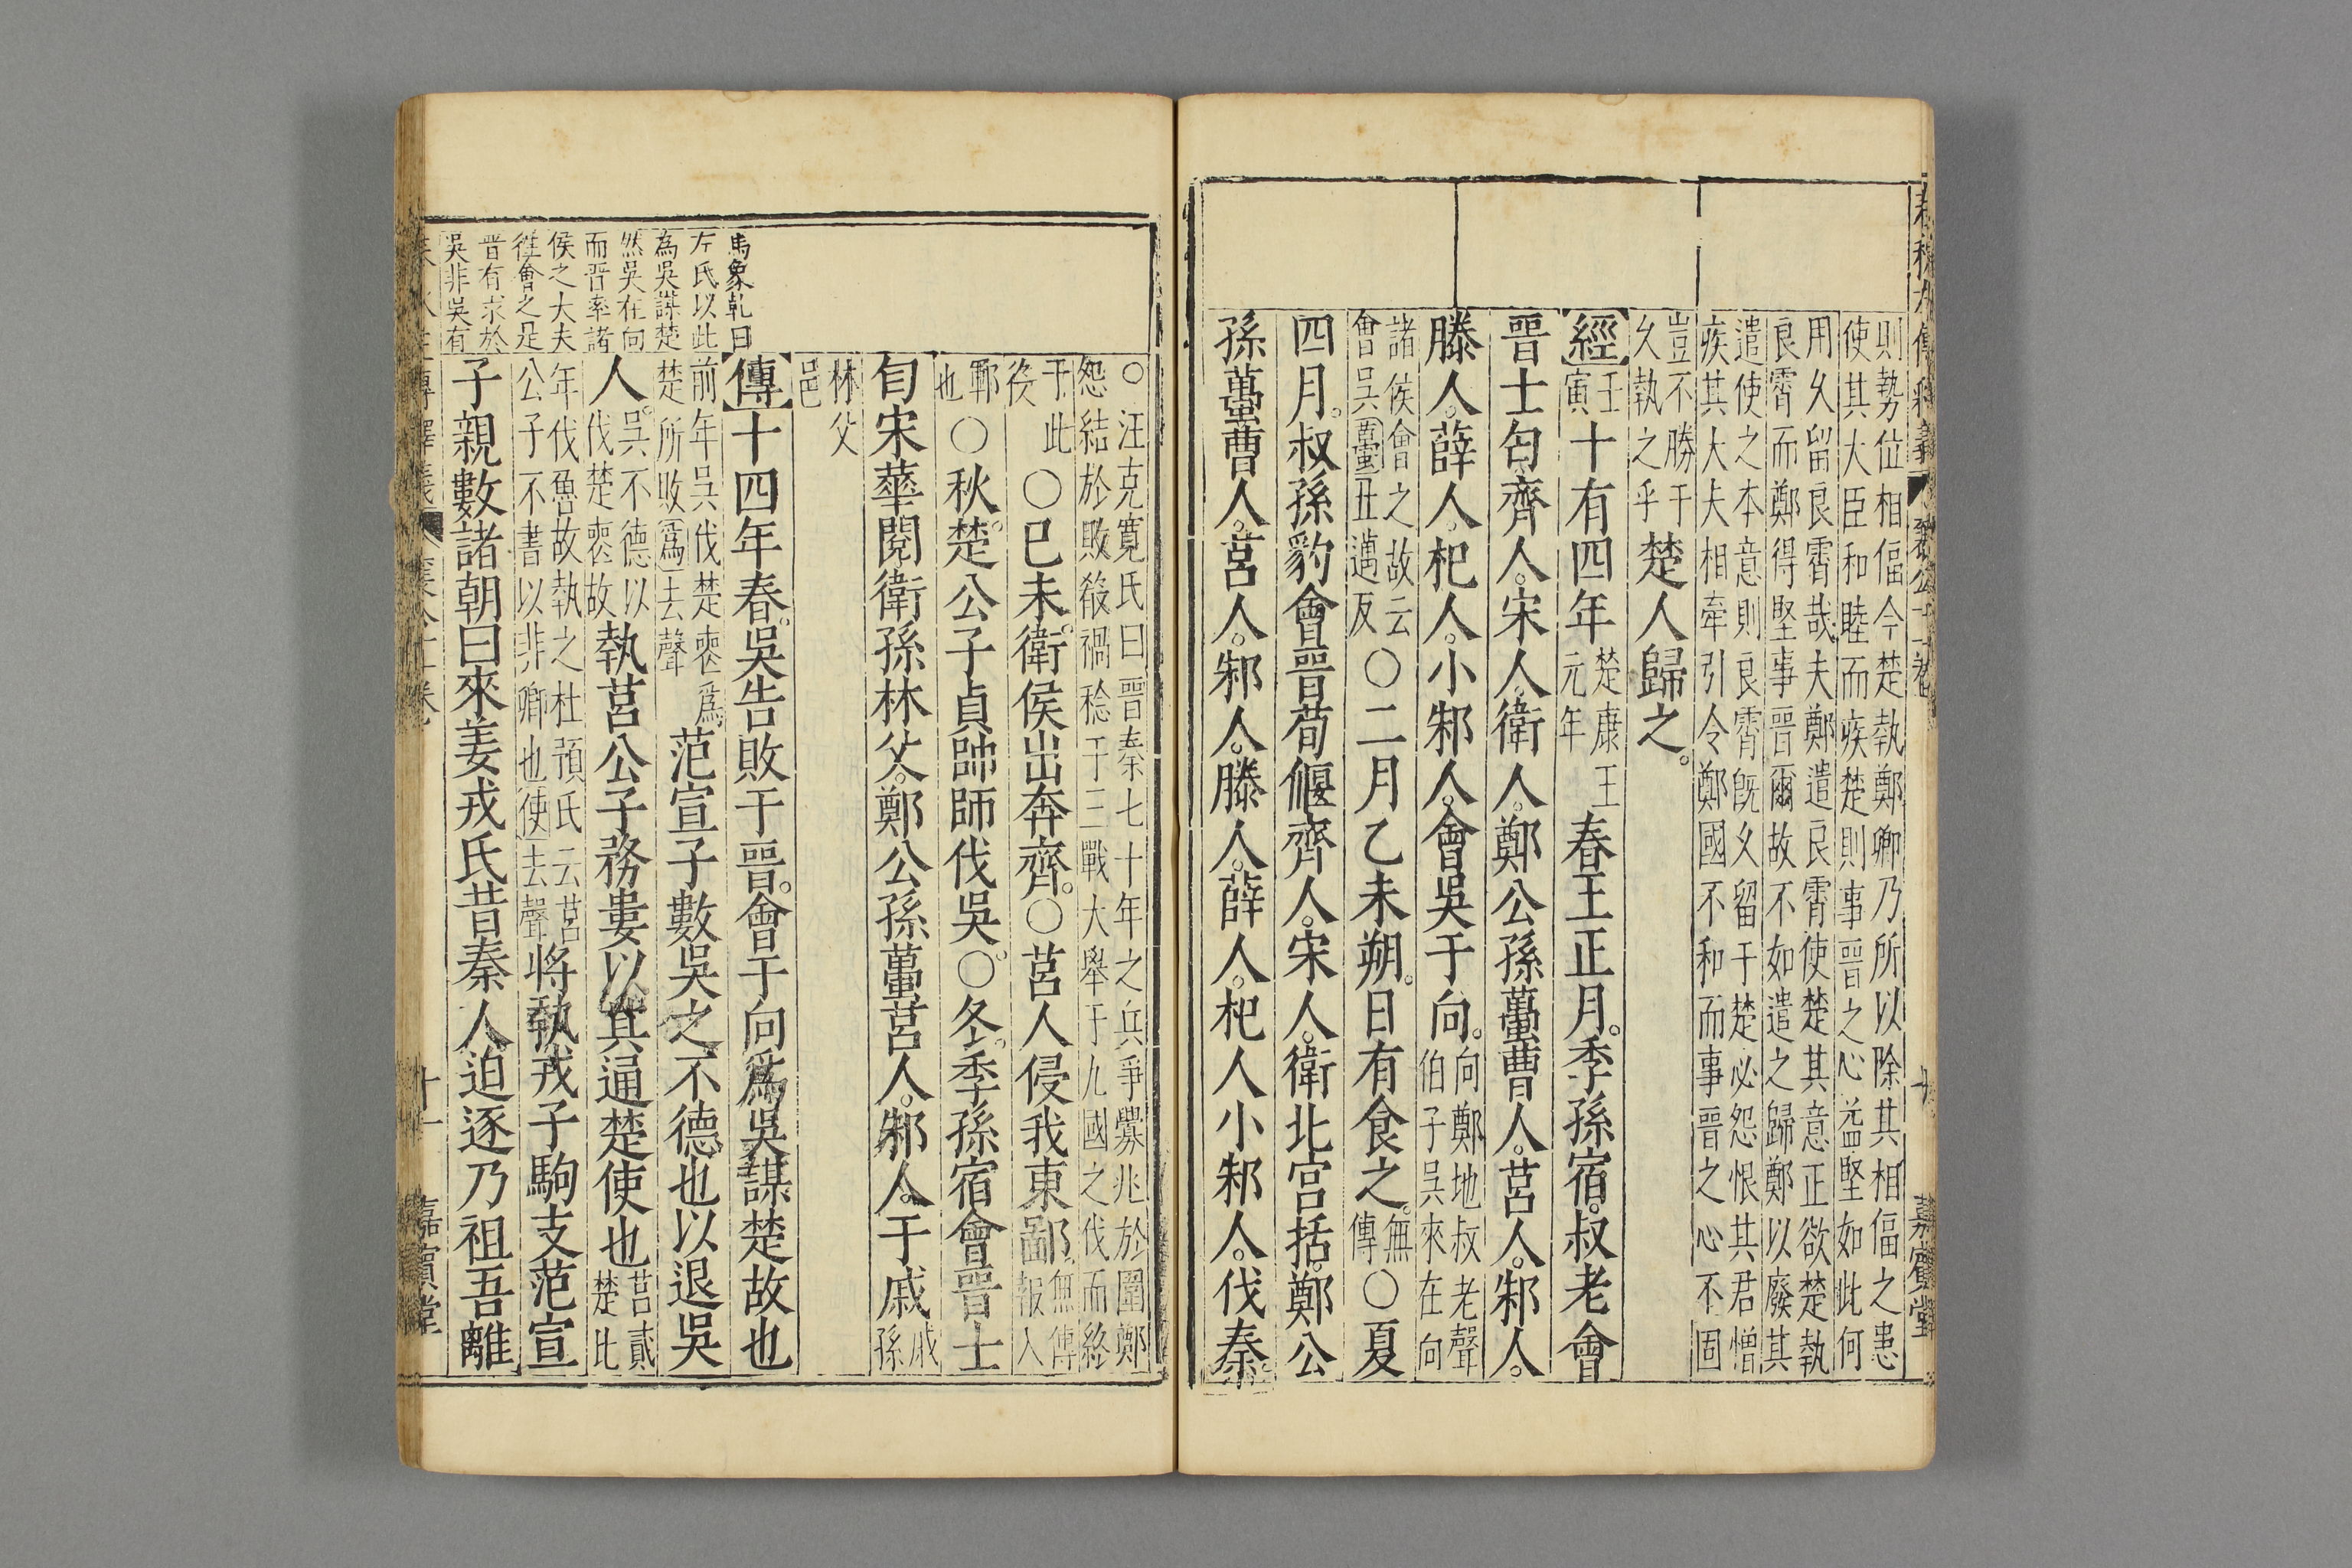 則勢位相偪今楚執鄭卿乃所以除其相偪之患
使其大臣和睦而疾楚則事晉之心益堅如此何
用久留良霄哉夫鄭遣良霄使楚其意正欲楚執
良霄而鄭得堅事晉爾故不如遣之歸鄭以廢其
遣使之本意則良霄旣久留于楚必怨恨其君憎
疾其大夫相牽引令鄭國不和而事晉之心不固
豈不勝于
久執之乎
楚人歸之。
經
壬
寅
十有四年
楚康王
元年
春王正月。季孫宿。叔老會
晉士匄。齊人。宋人。衛人。鄭公孫蠆。曹人。莒人。邾人。
滕人。薛人。杞人。小邾人。會吳于向。
向鄭地叔老聲
伯子吳來在向
諸侯會之故云
會吳蠆丑邁反
〇二月乙未朔。日有食之。
無
傳
〇夏
四月。叔孫豹會晉荀偃齊人。宋人。衛北宮括。鄭公
孫蠆曹人。莒人。邾人。滕人。薛人。杞人小邾人。伐秦。
〇汪克寬氏曰晉秦七十年之兵爭釁兆於圍鄭
怨結於敗殽禍稔于三戰大舉于九國之伐而終
于此
役
〇己未。衛侯出奔齊。〇莒人侵我東鄙。
無傳
報入
鄆
也
〇秋。楚公子貞帥師伐吳。〇冬。季孫宿會晉士
匄宋華閱衛孫林父。鄭公孫蠆莒人。邾人。于戚
戚孫
林父
邑
傳
十四年春。吳告敗于晉。會于向爲吳謀楚故也
前年吳伐楚喪爲
楚所敗爲去聲
范宣子數吳之不德也以退吳
人。
吳不德以
伐楚喪故
執莒公子務婁以其通楚使也
莒貳
楚比
年伐魯故執之杜預氏云莒
公子不書以非卿也使去聲
將執戎子駒支范宣
子親數諸朝曰來姜戎氏昔秦人迫逐乃祖吾離
馬象乾曰
左氏以此
為吳謀楚
然吳在向
而晉率諸
侯之大夫
徃會之是
晉有求於
吳非吳有
十一
嘉賓堂